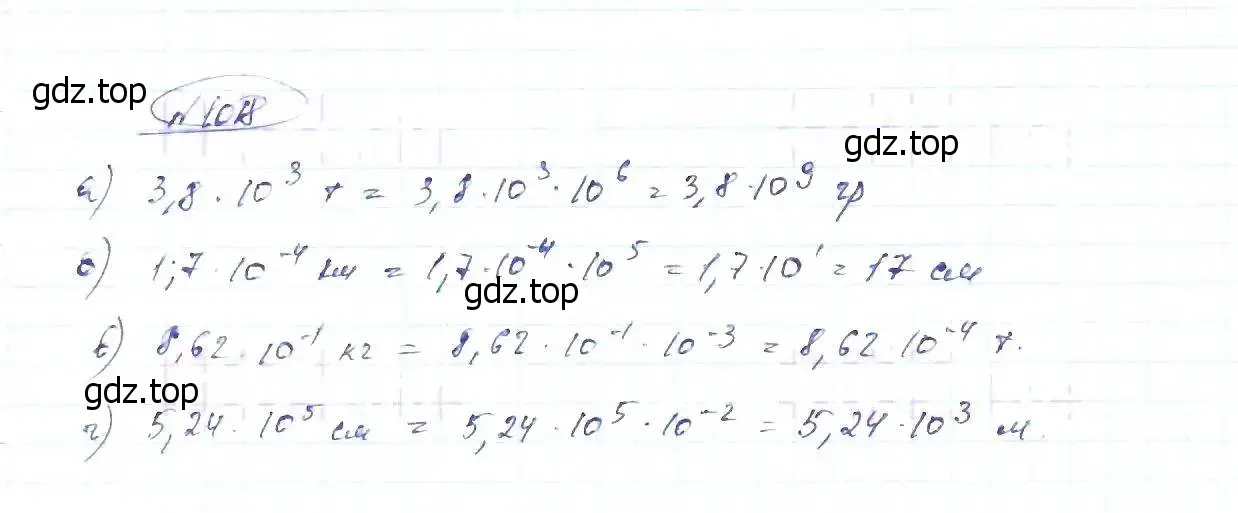 gdz.top
№ 1018
gdz.top
а) 3,8 · 10³ т = 3,8 · 10³ · 10⁶ = 3,8 · 10⁹ гр
б) 1,7 · 10⁻⁴ км = 1,7 · 10⁻⁴ · 10⁵ = 1,7 · 10¹ = 17 см
gdz.top
в) 8,62 · 10⁻¹ кг = 8,62 · 10⁻¹ · 10⁻³ = 8,62 · 10⁻⁴ т.
gdz.top
г) 5,24 · 10⁵ см = 5,24 · 10⁵ · 10⁻² = 5,24 · 10³ м.